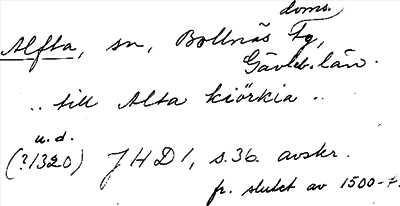 Alfta, sn, Bollnäs doms. Fg,
Gävleb. län.
.. till Alta kiörkia ..
u.d.
(?1320) JHD1, s.36. avskr.
fr. slutet av 1500-t.